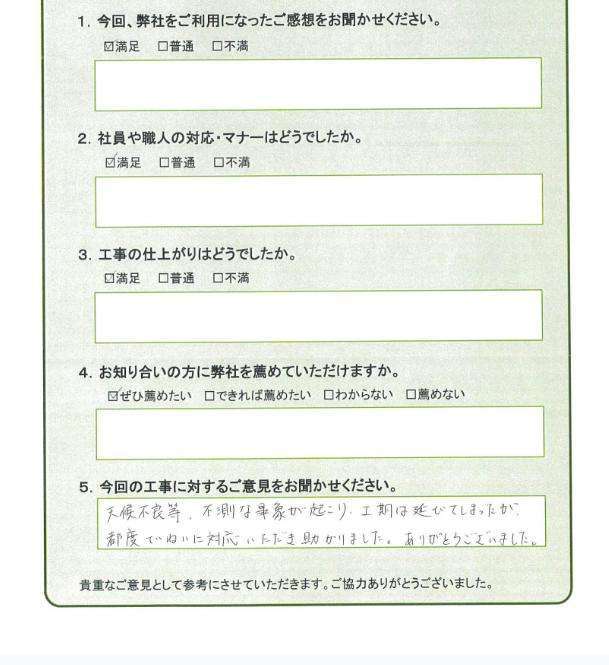 1. 今回、弊社をご利用になったご感想をお聞かせください。
☑満足 □普通 □不満
2. 社員や職人の対応・マナーはどうでしたか。
☑満足 □普通 □不満
3. 工事の仕上がりはどうでしたか。
☑満足 □普通 □不満
4. お知り合いの方に弊社を薦めていただけますか。
☑ぜひ薦めたい □できれば薦めたい □わからない □薦めない
5. 今回の工事に対するご意見をお聞かせください。
天候不良等、不測な事象が起こり、工期は延びてしまったが、
都度ていねいに対応いただき助かりました。ありがとうございました。
貴重なご意見として参考にさせていただきます。ご協力ありがとうございました。